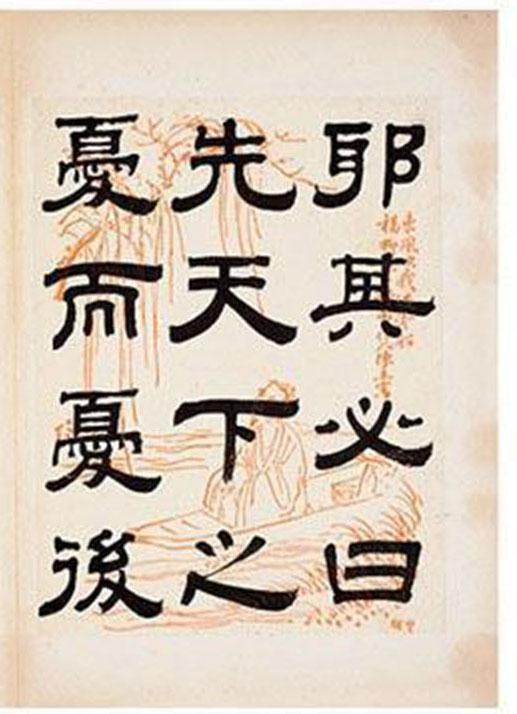 耶其必曰
先天下之
憂而憂後